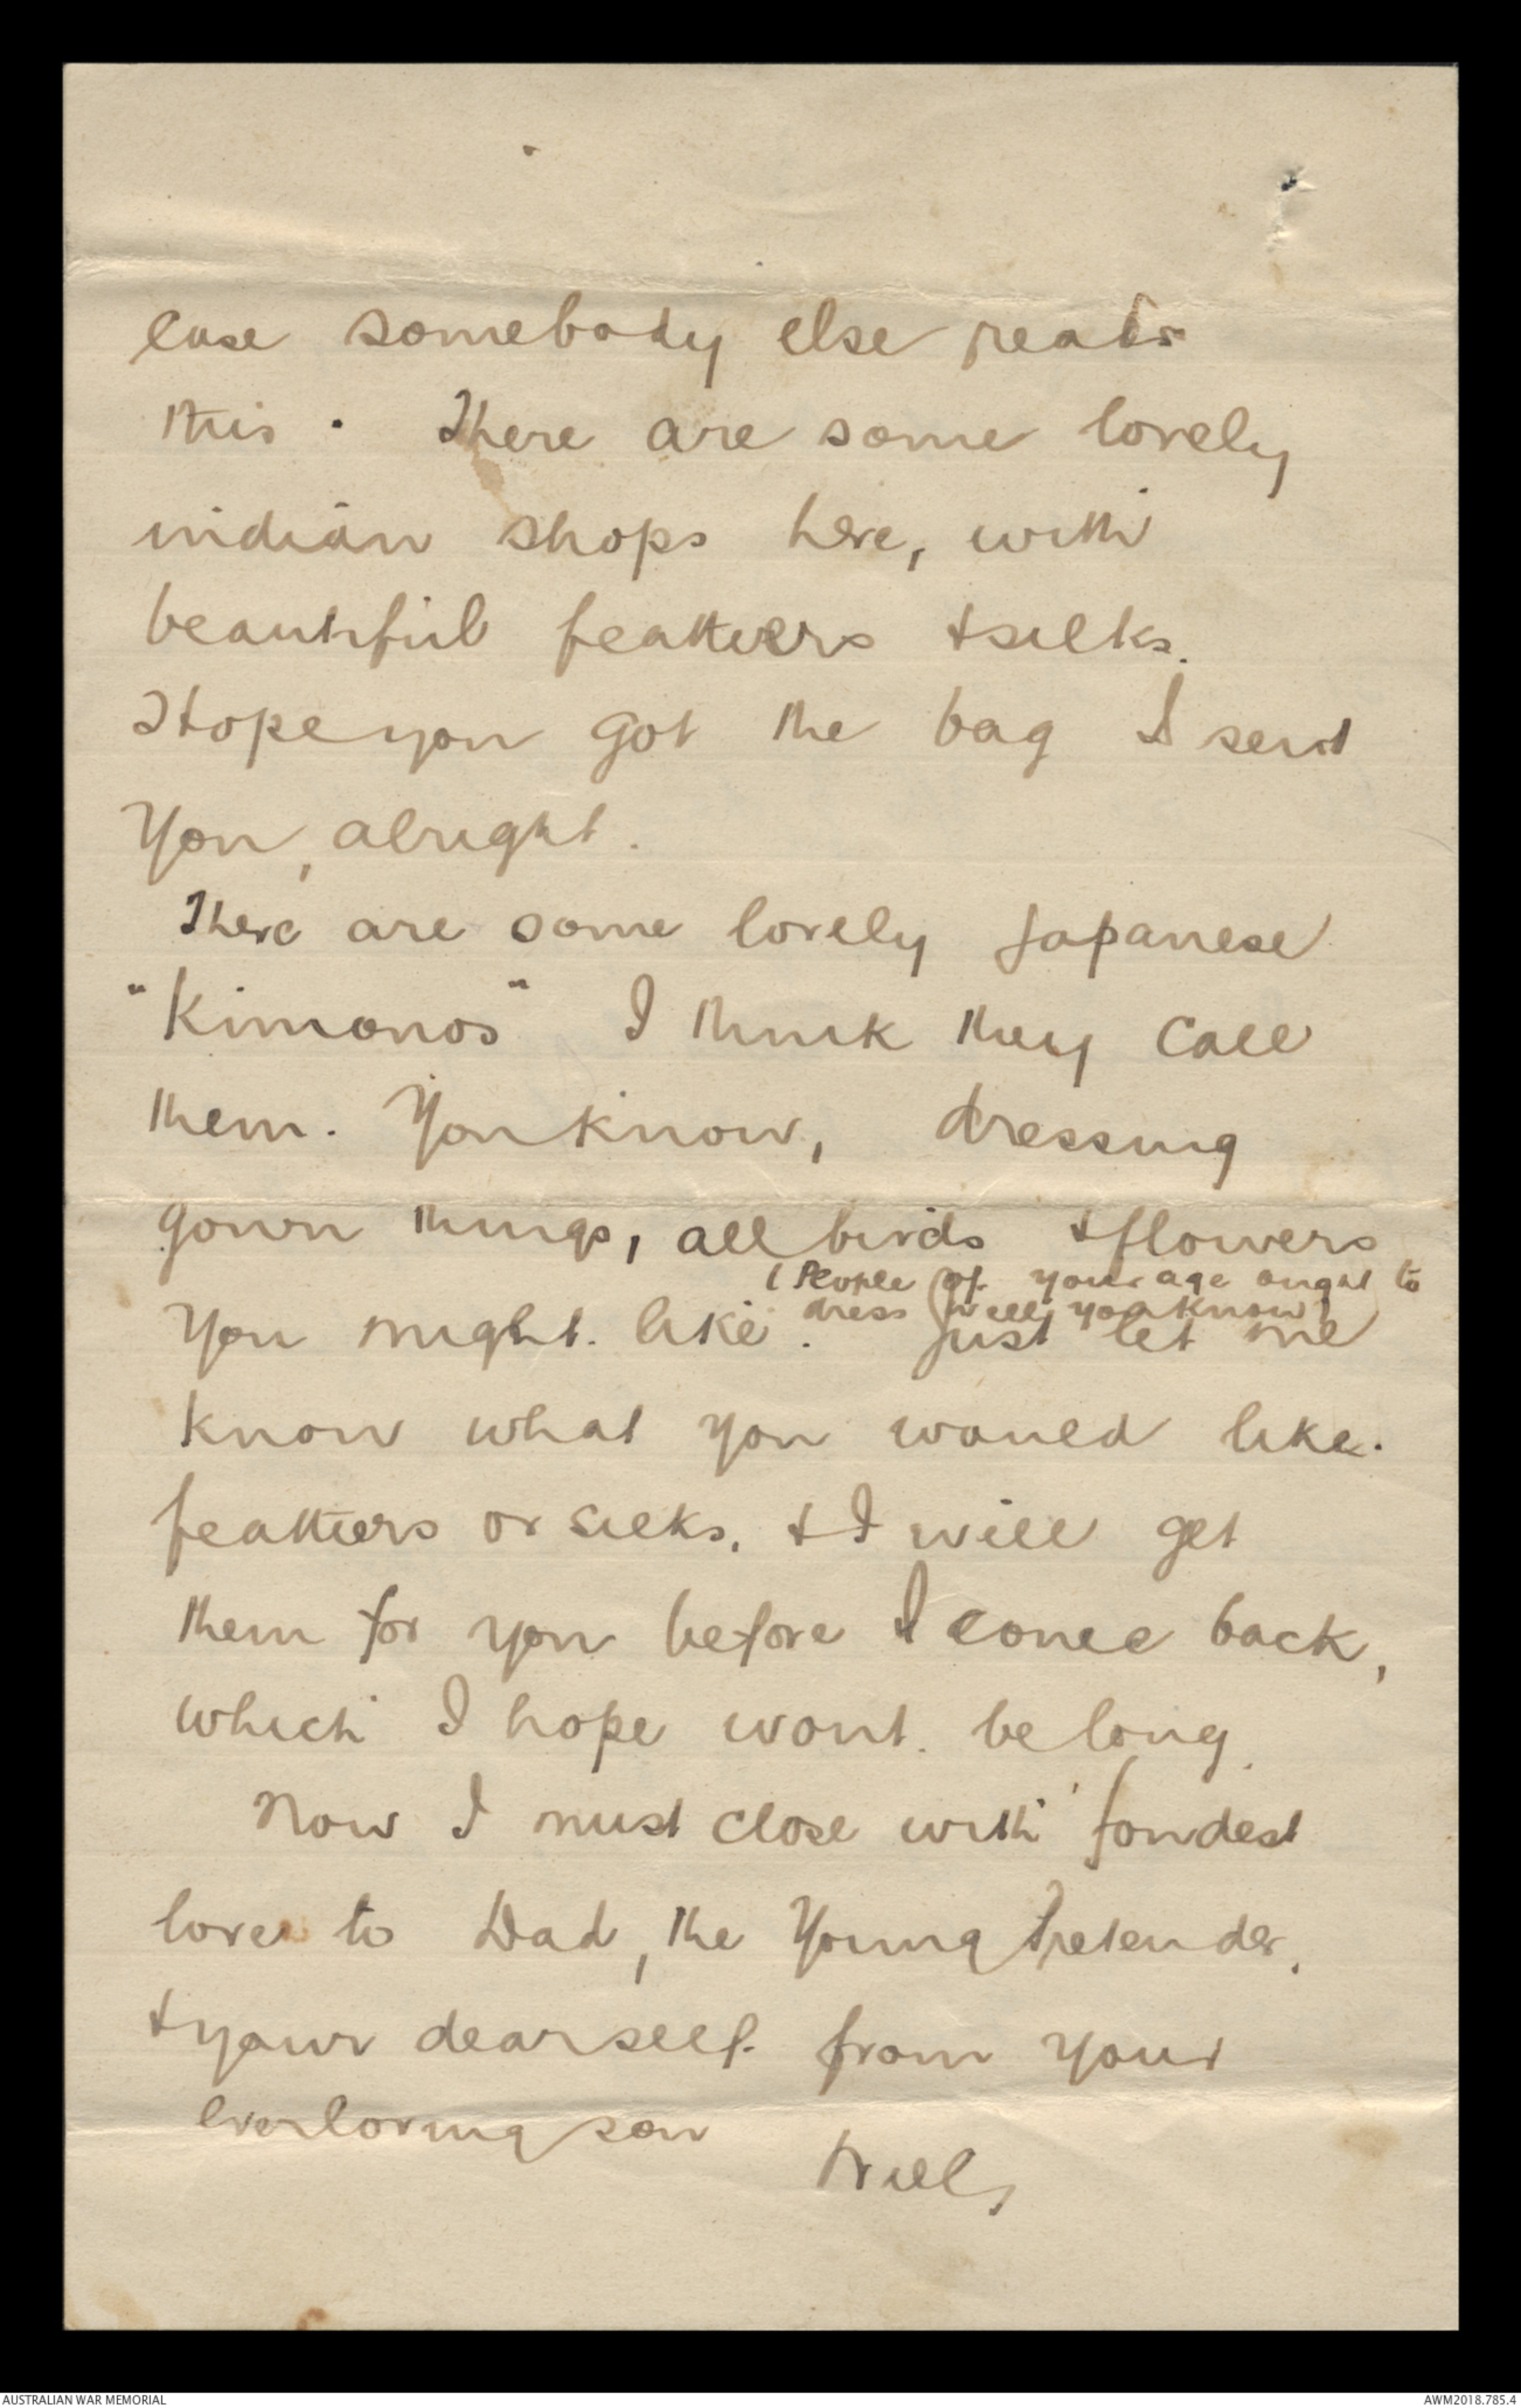 case somebody else reads
this. There are some lovely
indian shops here, with
beautiful feathers & silks.
I hope you got the bag I sent
You, alright.
There are some lovely Japanese
"Kimonos" I think they call
them. You know, dressing
gown things, all birds & flowers
(People of your age ought to
dress well, you know)
You might like. Just let me
know what you would like.
feathers or silks, & I will get
them for you before I come back,
which I hope wont be long.
Now I must close with fondest
love to Dad, the Young Pretender,
& your dear self from your
everloving son
AUSTRALIAN WAR MEMORIAL
AWM2018.785.4